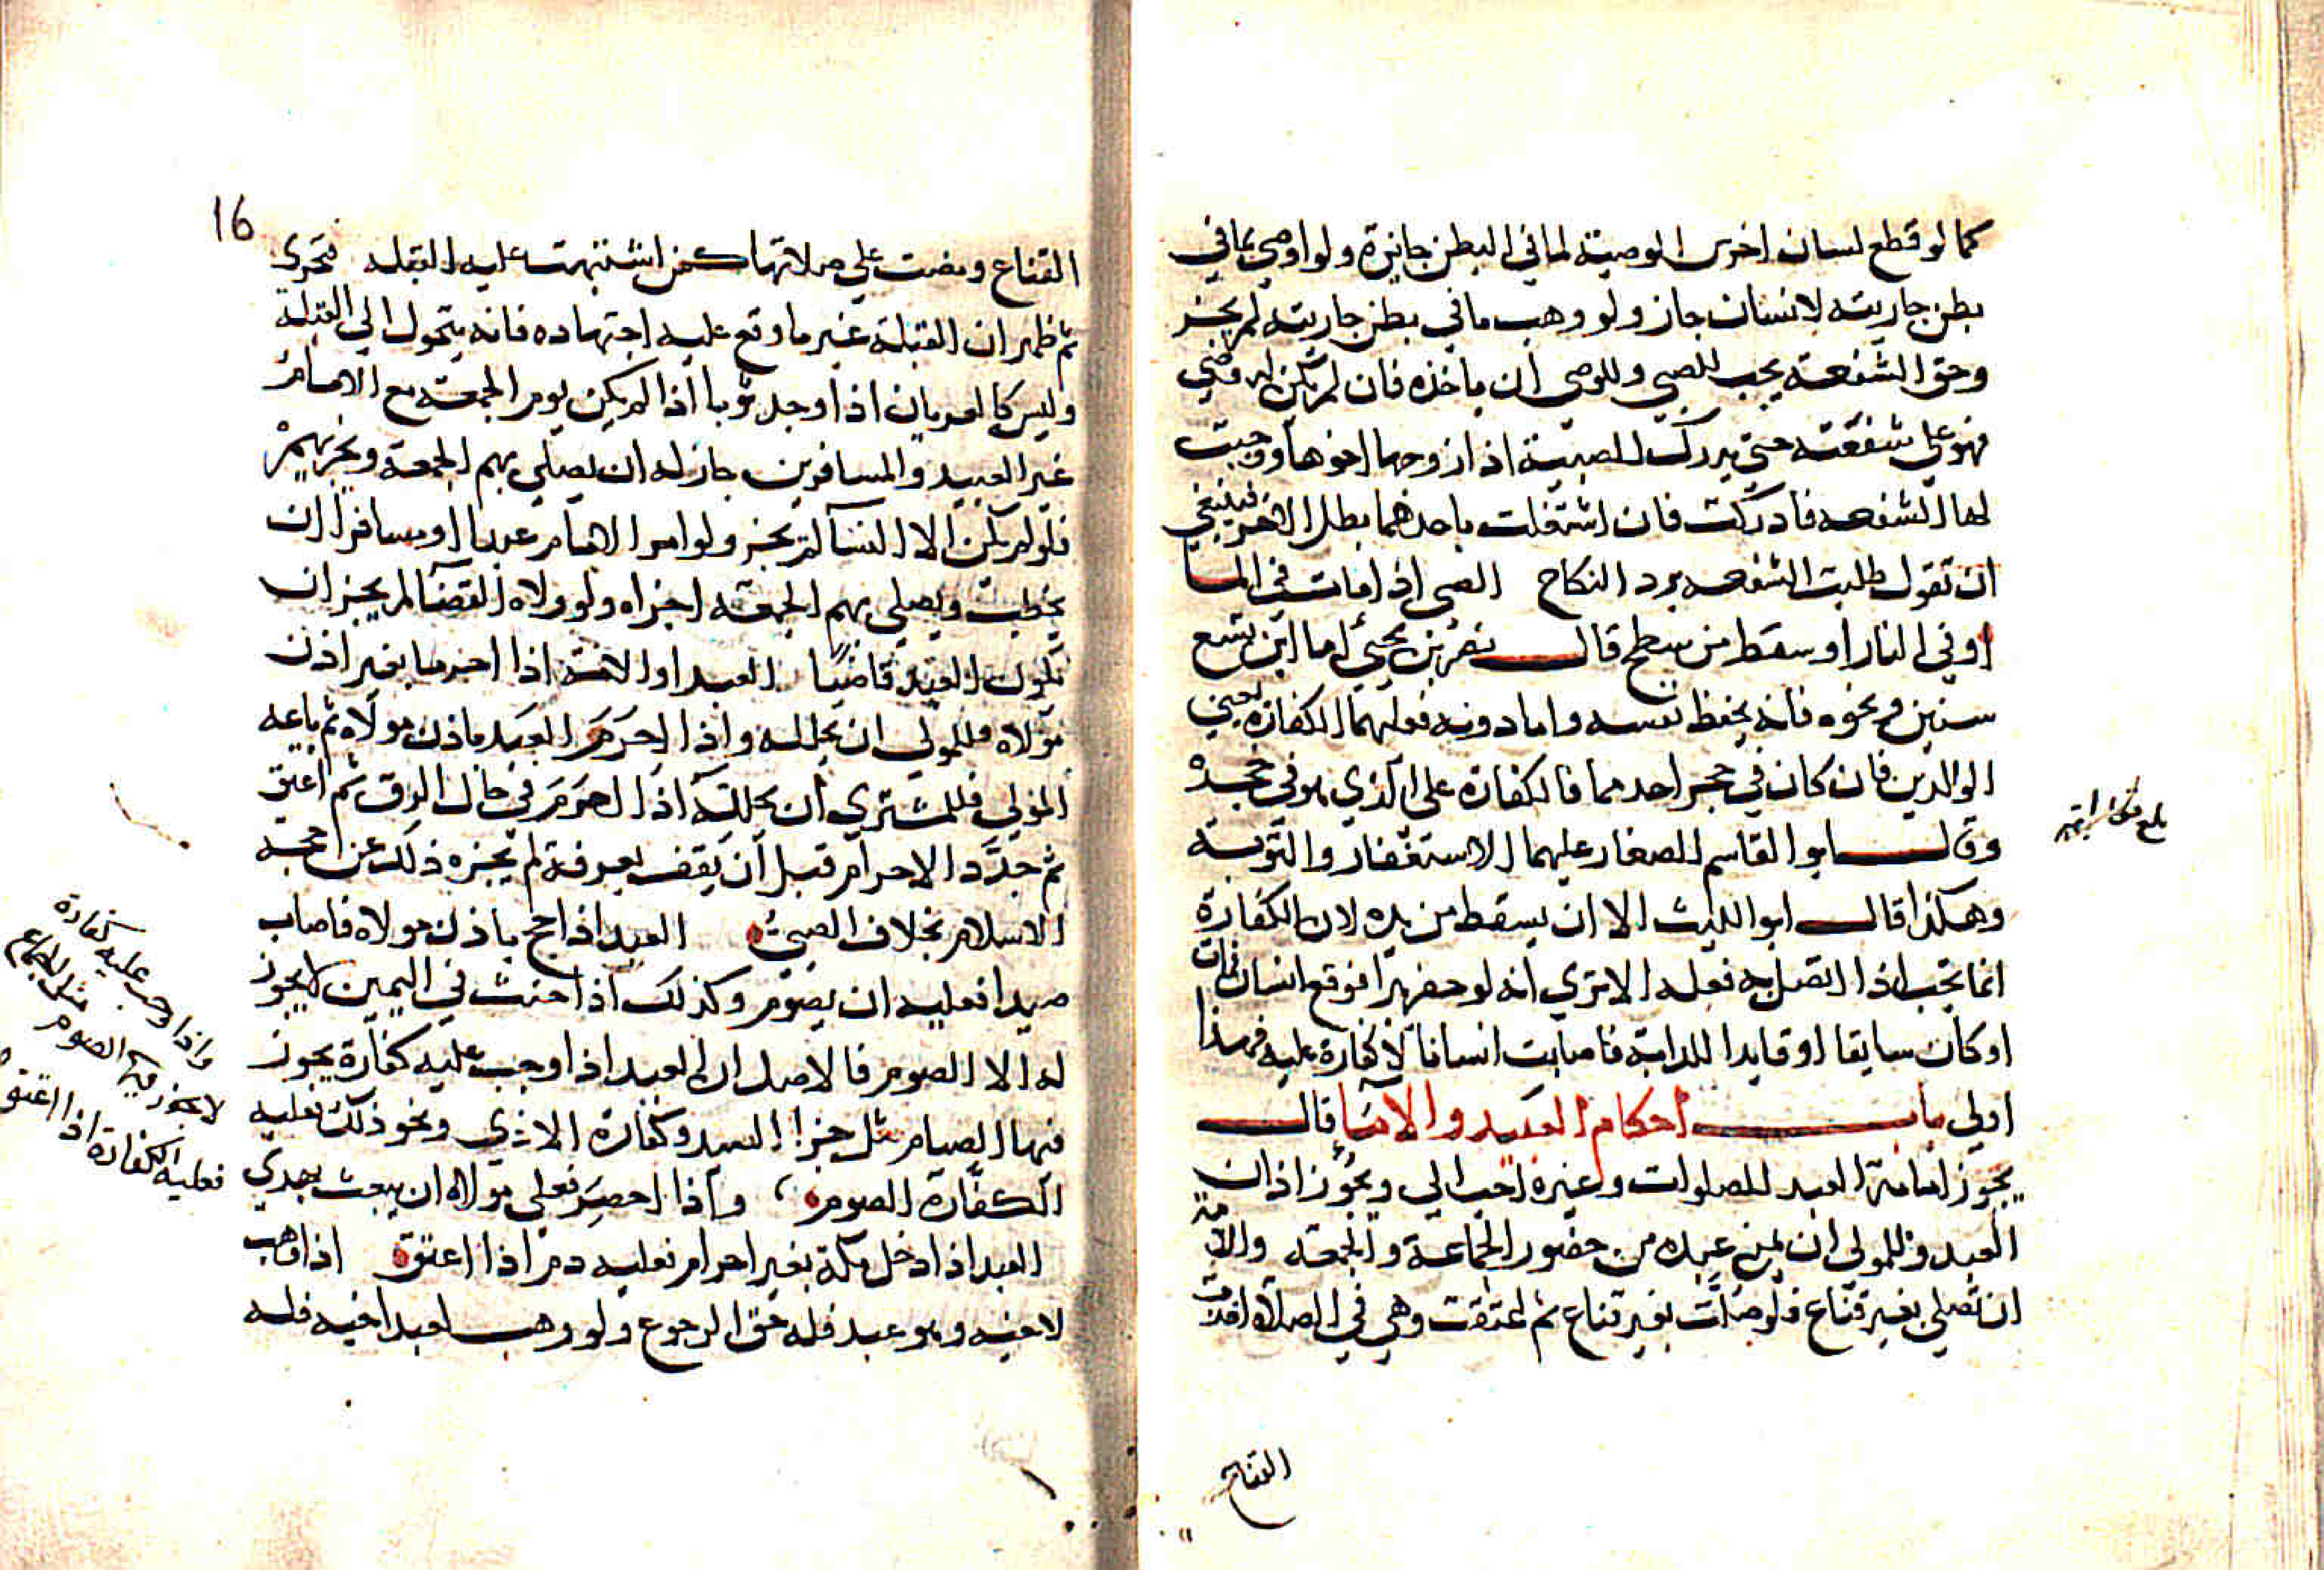 كما لو قطع لسان اخرس الوصية لما في البطن جايزة ولو اوصي بما في
بطن جاريته لانسان جاز ولو وهب ما في بطن جاريته لم يجز
وحق الشفعة يجب للصبي وللوصي ان ياخذه فان لم يكن له وصي
فهو علي شفعته حتي يدرك الصبية اذا زوجها اخوها ووجبت
لها الشفعه فادركت فان اشتغلت باحدهما بطل الاخر فينبغي
ان تقول طلبت الشفعه برد النكاح الصبي اذا مات في الما
او في النار او سقط من سطح قال نصر بن يحيي اما ابن تسع
سنين ونحوه فانه يحفظ نفسه واما دونه فعليهما الكفارة يعني
الوالدين فان كان في حجر احدهما فالكفارة علي الذي هو في حجره
وقال ابو القاسم الصفار عليهما الاستغفار والتوبة
وهكذا قال ابو الليث الا ان يسقط من يده لان الكفارة
انما تجب اذا اتصل به فعله الا تري انه لو حفر بيرا فوقع انسان فمات
او كان سايقا او قايدا للدابة فاصابت انسانا لا كفارة عليه فهذا
اولي باب احكام العبيد والاما قال
يجوز امامة العبد للصلوات وغيره احب الي ويجوز اذان
العبد وللمولي ان يمنع عبده من حضور الجماعة والجمعه والامة
ان تصلي بغير قناع فلو صلت بغير قناع ثم اعتقت وهي في الصلاة اخذت
القناع
بلغ مقابلة
16
القناع ومضت علي صلاتها كمن اشتبهت عليه القبله فتحري
ثم ظهر ان القبلة غير ما وقع عليه اجتهاده فانه يتحول الي القبلة
وليس كالعريان اذا وجد ثوبا اذا لم يكن يوم الجمعة مع الامام
غير العبيد والمسافرين جاز له ان يصلي بهم الجمعة ويجزيهم
فلو لم يكن الا النسا لم يجز ولو امر الامام عبدا او مسافرا ان
يخطب ويصلي بهم الجمعه اجزاه ولو ولاه القضا لم يجز ان
يكون العبد قاضيا العبد او الامة اذا احرما بغير اذن
مولاه فللمولي ان يحلله واذا احرم العبد باذن مولاه ثم باعه
المولي فللمشتري ان يحلله اذا احرم في حال الرق ثم اعتق
ثم جدد الاحرام قبل ان يقف بعرفة لم يجزه ذلك عن حجة
الاسلام بخلاف الصبي العبد اذا حج باذن مولاه فاصاب
صيدا فعليه ان يصوم وكذلك اذا حنث في اليمين لا يجوز
له الا الصوم فالاصل ان العبد اذا وجب عليه كفارة يجوز
فيها الصيام مثل جزا الصيد وكفارة الاذي ونحو ذلك فعليه
الكفارة الصوم واذا احصر فعلي مولاه ان يبعث بهدي
العبد اذا دخل مكة بغير احرام فعليه دم اذا اعتق اذا وهب
لاخيه وهو عبد فله حق الرجوع ولو وهب لعبد اخيه فله
واذا وجب عليه كفارة
لا يجوز فيها الصوم مثل الجماع
فعليه الكفارة اذا اعتق